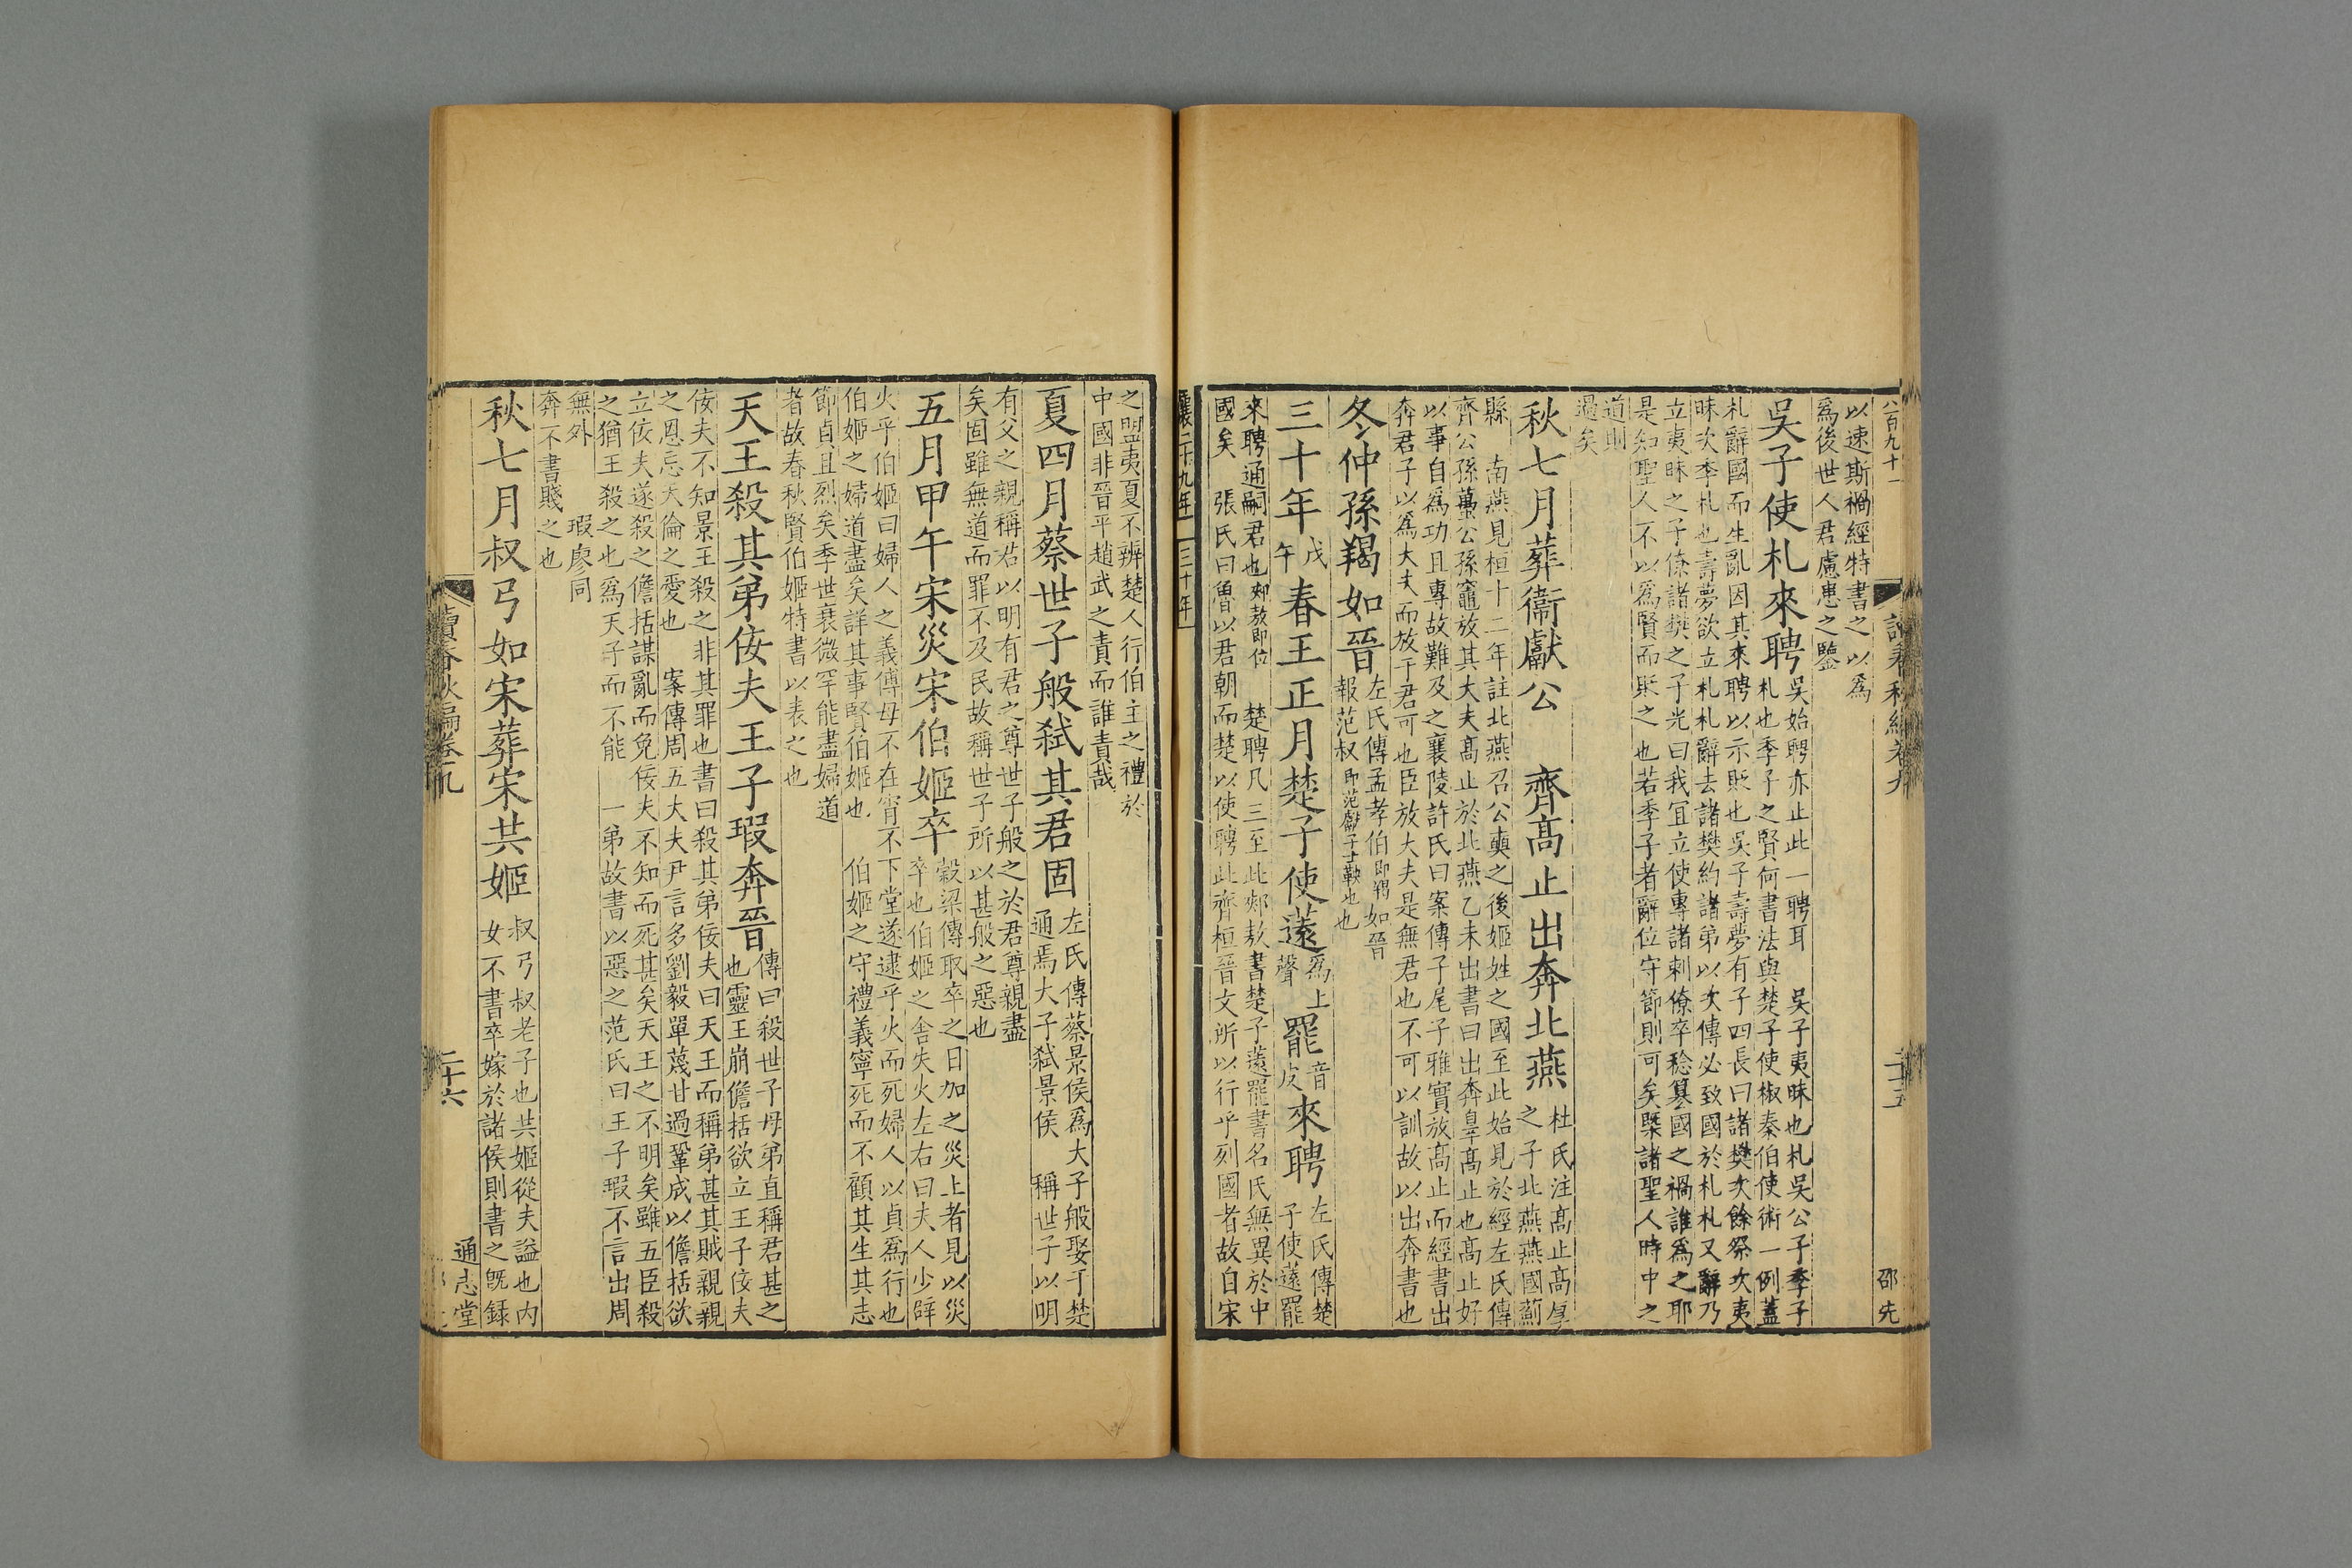 八百九十一
讀春秋編卷九
二十五
邵先
以速斯禍經特書之以爲
爲後世人君慮患之鑒
吳子使札來聘
吳始聘亦止此一聘耳 吳子夷昧也札吳公子季子
札也季子之賢何書法與楚子使椒秦伯使術一例蓋
札辭國而生亂因其來聘以示貶也吳子壽夢有子四長曰諸樊次餘祭次夷
昧次季札也壽夢欲立札札辭去諸樊約諸弟以次傳必致國於札札又辭乃
立夷昧之子僚諸樊之子光曰我宜立使專諸刺僚卒稔簒國之禍誰爲之耶
是知聖人不以爲賢而貶之 也若季子者辭位守節則可矣槩諸聖人時中之
道則
過矣
秋七月葬衞獻公 齊高止出奔北燕
杜氏注高止高厚
之子北燕燕國薊
縣 南燕見桓十二年註北燕召公奭之後姬姓之國至此始見於經左氏傳
齊公孫蠆公孫竈放其大夫高止於北燕乙未出書曰出奔辠高止也高止好
以事自爲功且專故難及之襄陵許氏曰案傳子尾子雅實放高止而經書出
奔君子以爲大夫而放于君可也臣放大夫是無君也不可以訓故以出奔書也
冬仲孫羯如晉
左氏傳孟孝伯即羯如晉
報范叔即范獻子士鞅也也
三十年
戊
午
春王正月楚子使薳
爲上
聲
罷
音
皮
來聘
左氏傳楚
子使薳罷
來聘通嗣君也郟敖即位 楚聘凡三至此郟敖書楚子薳罷書名氏無異於中
國矣 張氏曰魯以君朝而楚以使聘此齊桓晉文所以行乎列國者故自宋
襄二十九年 三十年
之盟夷夏不辨楚人行伯主之禮於
中國非晉平趙武之責而誰責哉
夏四月蔡世子般弑其君固
左氏傳蔡景侯爲大子般娶于楚
通焉大子弑景侯 稱世子以明
有父之親稱君以明有君之尊世子般之於君尊親盡
矣固雖無道而罪不及民故稱世子所以甚般之惡也
五月甲午宋災宋伯姬卒
穀梁傳取卒之日加之災上者見以災
卒也伯姬之舍失火左右曰夫人少辟
火乎伯姬曰婦人之義傅母不在宵不下堂遂逮乎火而死婦人以貞爲行也
伯姬之婦道盡矣詳其事賢伯姬也 伯姬之守禮義寧死而不顧其生其志
節貞且烈矣季世衰微罕能盡婦道
者故春秋賢伯姬特書以表之也
天王殺其弟佞夫王子瑕奔晉
傳曰殺世子母弟直稱君甚之
也靈王崩儋括欲立王子佞夫
佞夫不知景王殺之非其罪也書曰殺其弟佞夫曰天王而稱弟甚其賊親親
之恩忘大倫之愛也 案傳周五大夫尹言多劉毅單蔑甘過鞏成以儋括欲
立佞夫遂殺之儋括謀亂而免佞夫不知而死甚矣天王之不明矣雖五臣殺
之猶王殺之也爲天子而不能 一弟故書以惡之范氏曰王子瑕不言出周
無外 瑕廖同
奔不書賤之也
秋七月叔弓如宋葬宋共姬
叔弓叔老子也共姬從夫謚也内
女不書卒嫁於諸侯則書之旣録
讀春秋編卷九
二十六
通志堂